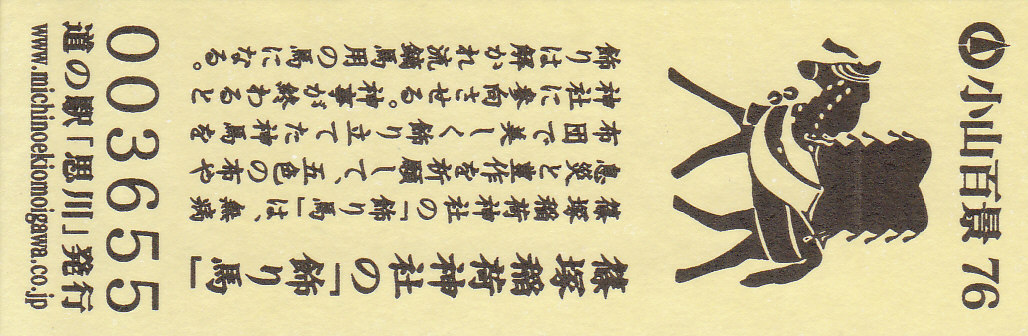 小山百景 76
篠塚稲荷神社の「飾り馬」
篠塚稲荷神社の「飾り馬」は、無病
息災と豊作を祈願して、五色の布や
布団で美しく飾り立てた神馬を
神社に参向させる。神事が終わると
飾りは解かれ流鏑馬用の馬になる。
003655
道の駅「思川」発行
www.michinoekiomoigawa.co.jp